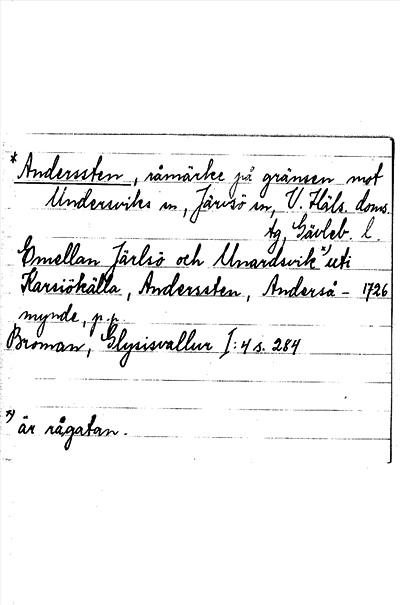 * Anderssten, råmärke på gränsen mot
Undersviks sn, Järvsö sn, V. Häls. doms.
tg, Gävleb. l.
Emellan Järlsö och Unardsvik *) uti
Karsiökälla, Andersten, Anderså- 1726
mynde, p.p.
Broman, Glysisvallur I:4 s. 284
*) är rågatan.